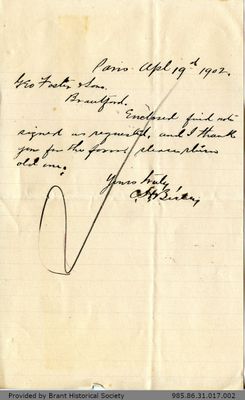 Paris Apl 19th 1902.
Geo Foster & Sons.
Brantford.
Enclosed find note
signed as requested, and I thank
you for the favor, please return
old one.
Yours truly
Provided by Brant Historical Society 985.86.31.017.002